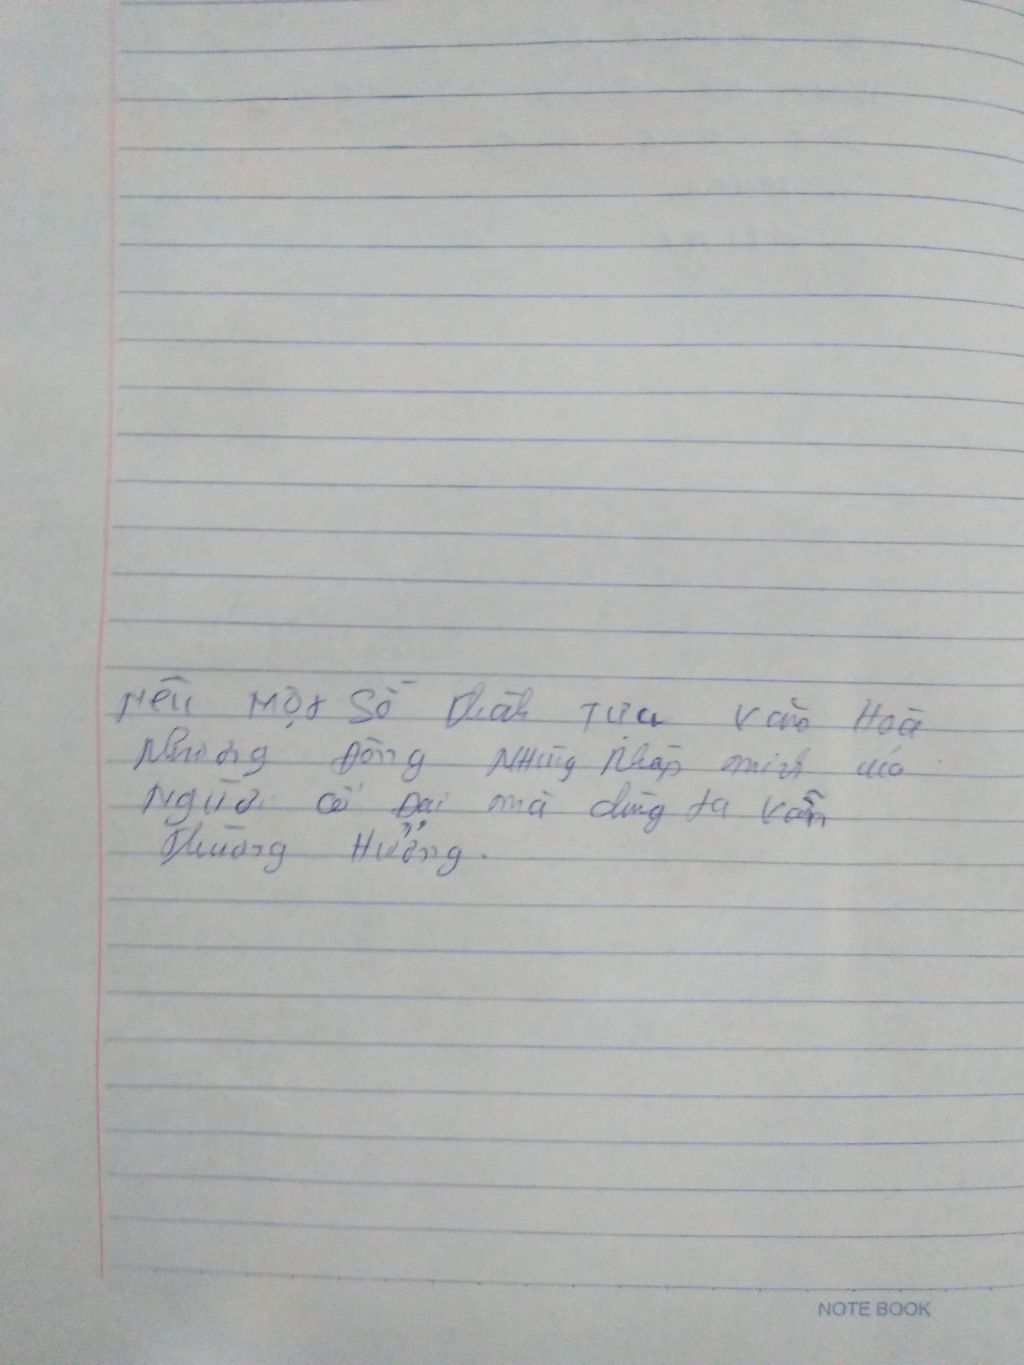 Nêu một số thành Tựu văn Hoá
Phương Đông Những Phát minh của
Người cổ Đại mà chúng ta vẫn
Thường Hưởng.
NOTE BOOK